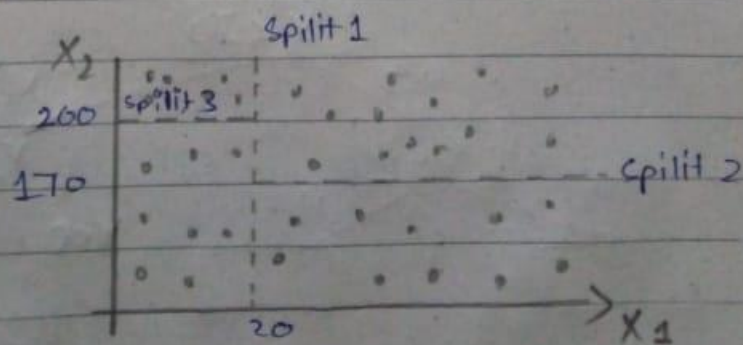 Spilit 1
X2
Spilit 3
200
170
Spilit 2
20
X1